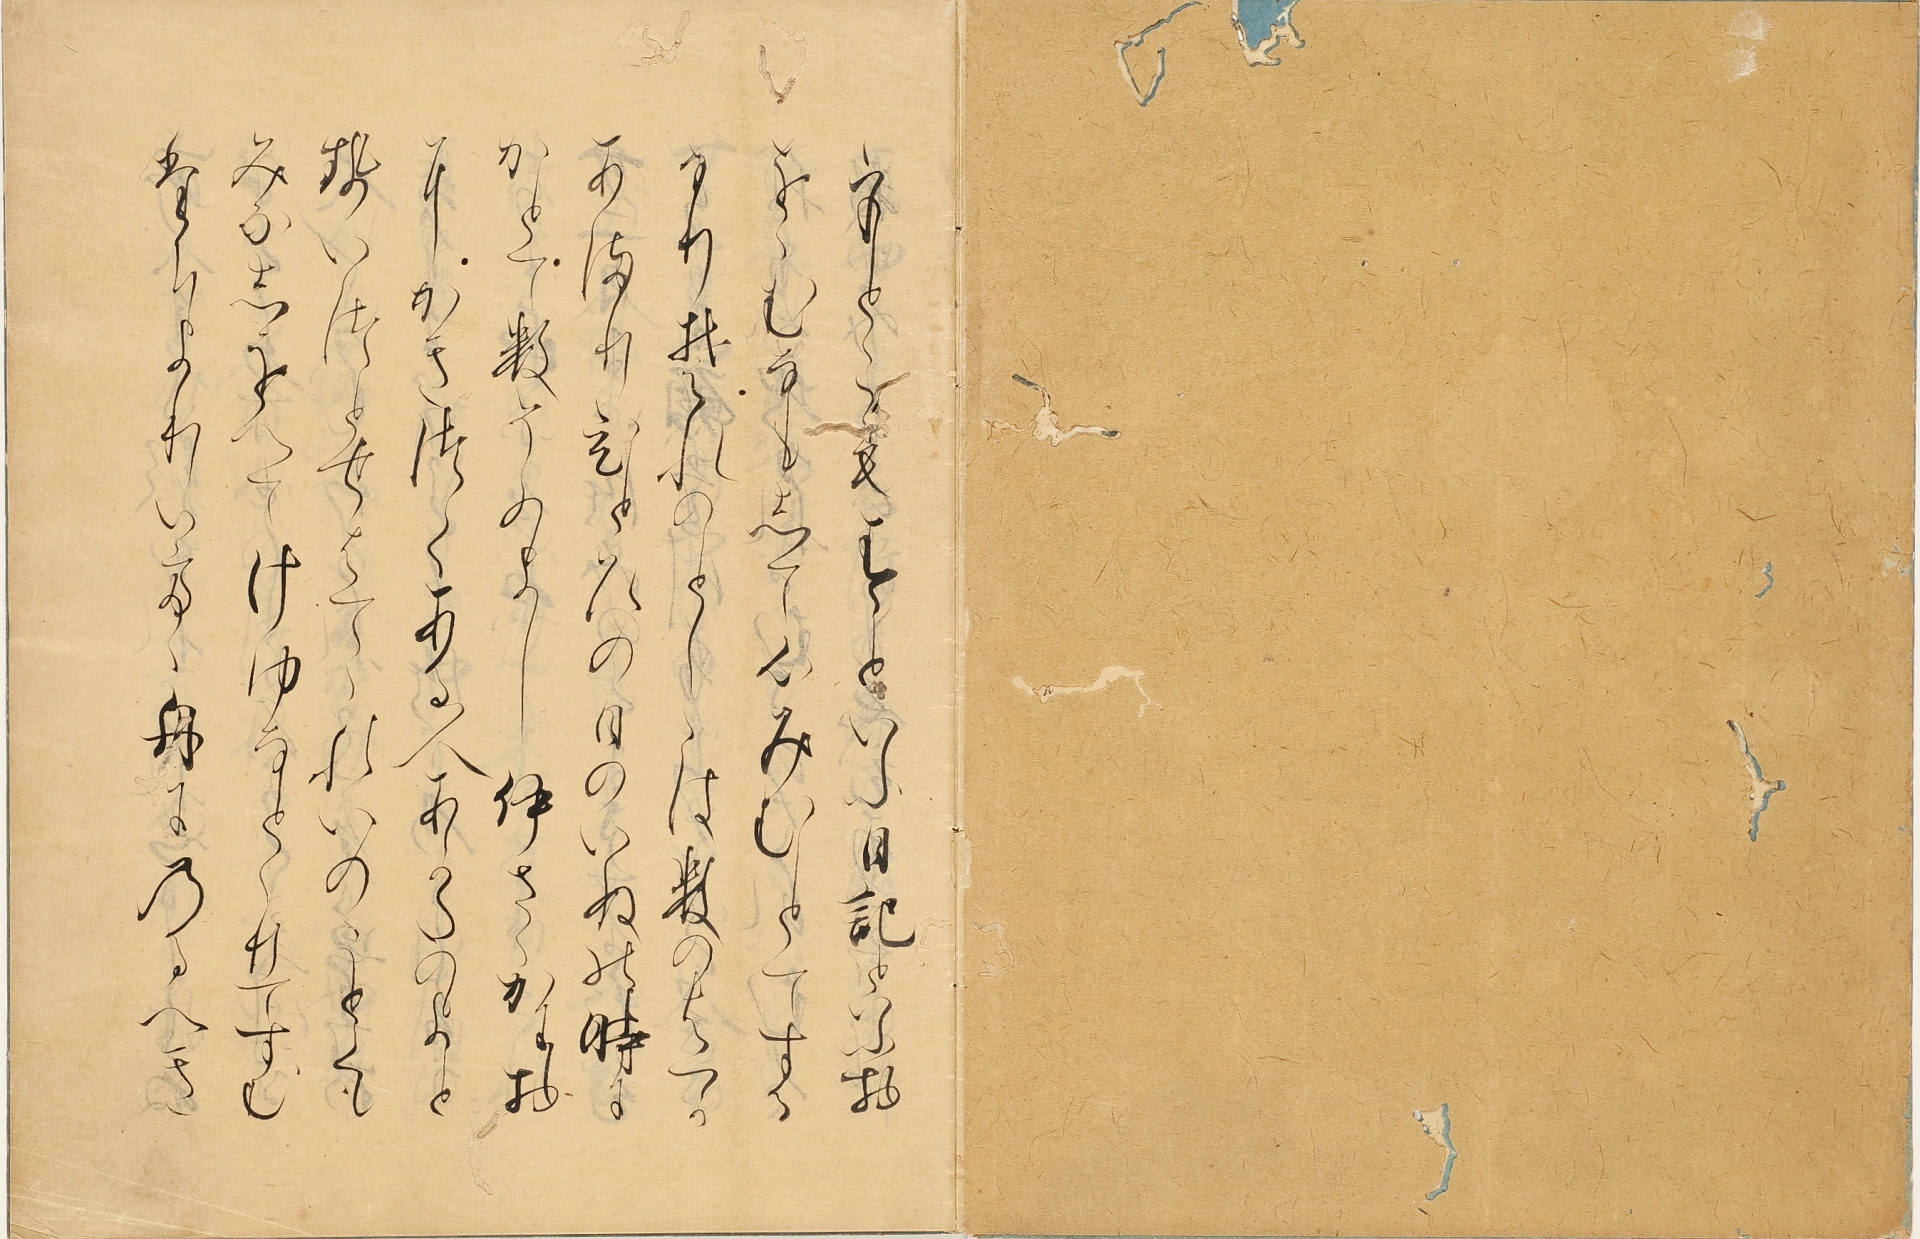 をとこもすといふ日記といふ物
をゝむなもして心みむとてする
なりそれのとししはすのはつか
あまりひとひの日のいぬの時に
かとてすそのよしいさゝかに物
にかきつくある人あかたのよと
せいつとせはてゝれいのことゝも
みなしをへてけゆなとゝりてすむ
たちよりいてゝ舟にのるへき